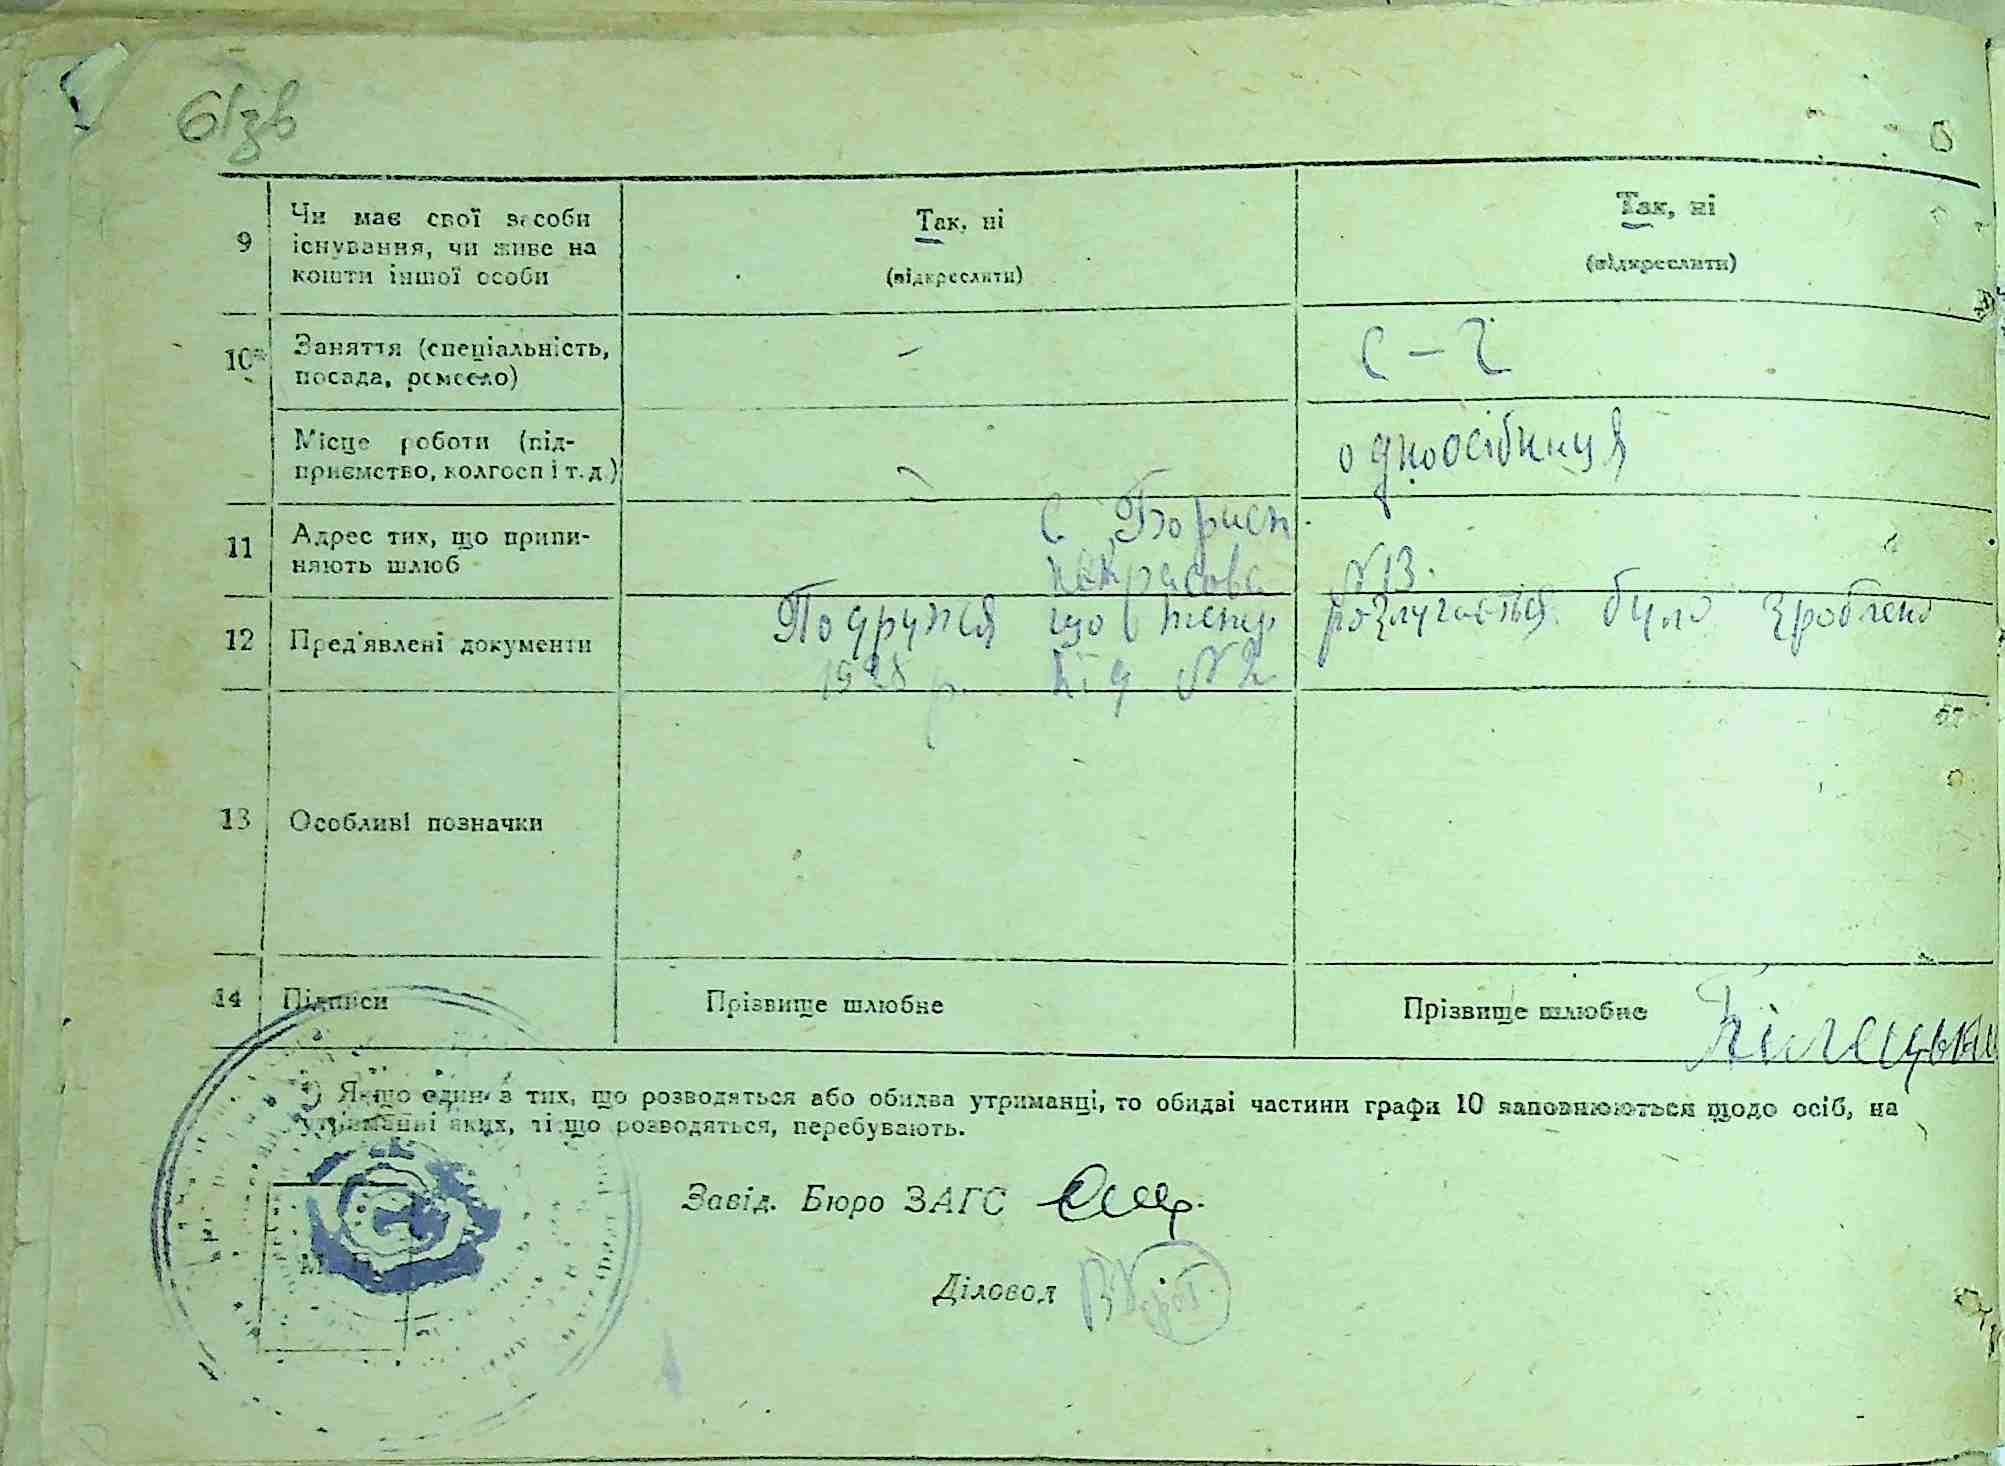 61зв
9 Чи має свої засоби існування, чи живе на кошти іншої особи
Так, ні
(підкреслити)
Так, ні
(підкреслити)
10* Заняття (спеціальність, посада, ремесло)
–
С – Г
Місце роботи (підприємство, колгосп і т.д.)
–
одноосібниця
11 Адрес тих, що припиняють шлюб
с.
№ 13.
12 Пред'явлені документи
що тепер розлучається було зроблено
1928 р. під № 2
13 Особливі позначки
14 Підписи
Прізвище шлюбне
Прізвище шлюбне
*) Якщо один з тих, що розводяться або обидва утриманці, то обидві частини графи 10 заповнюються щодо осіб, на
утриманні яких, ті що розводяться, перебувають.
Завід. Бюро ЗАГС
М. П.
Діловод